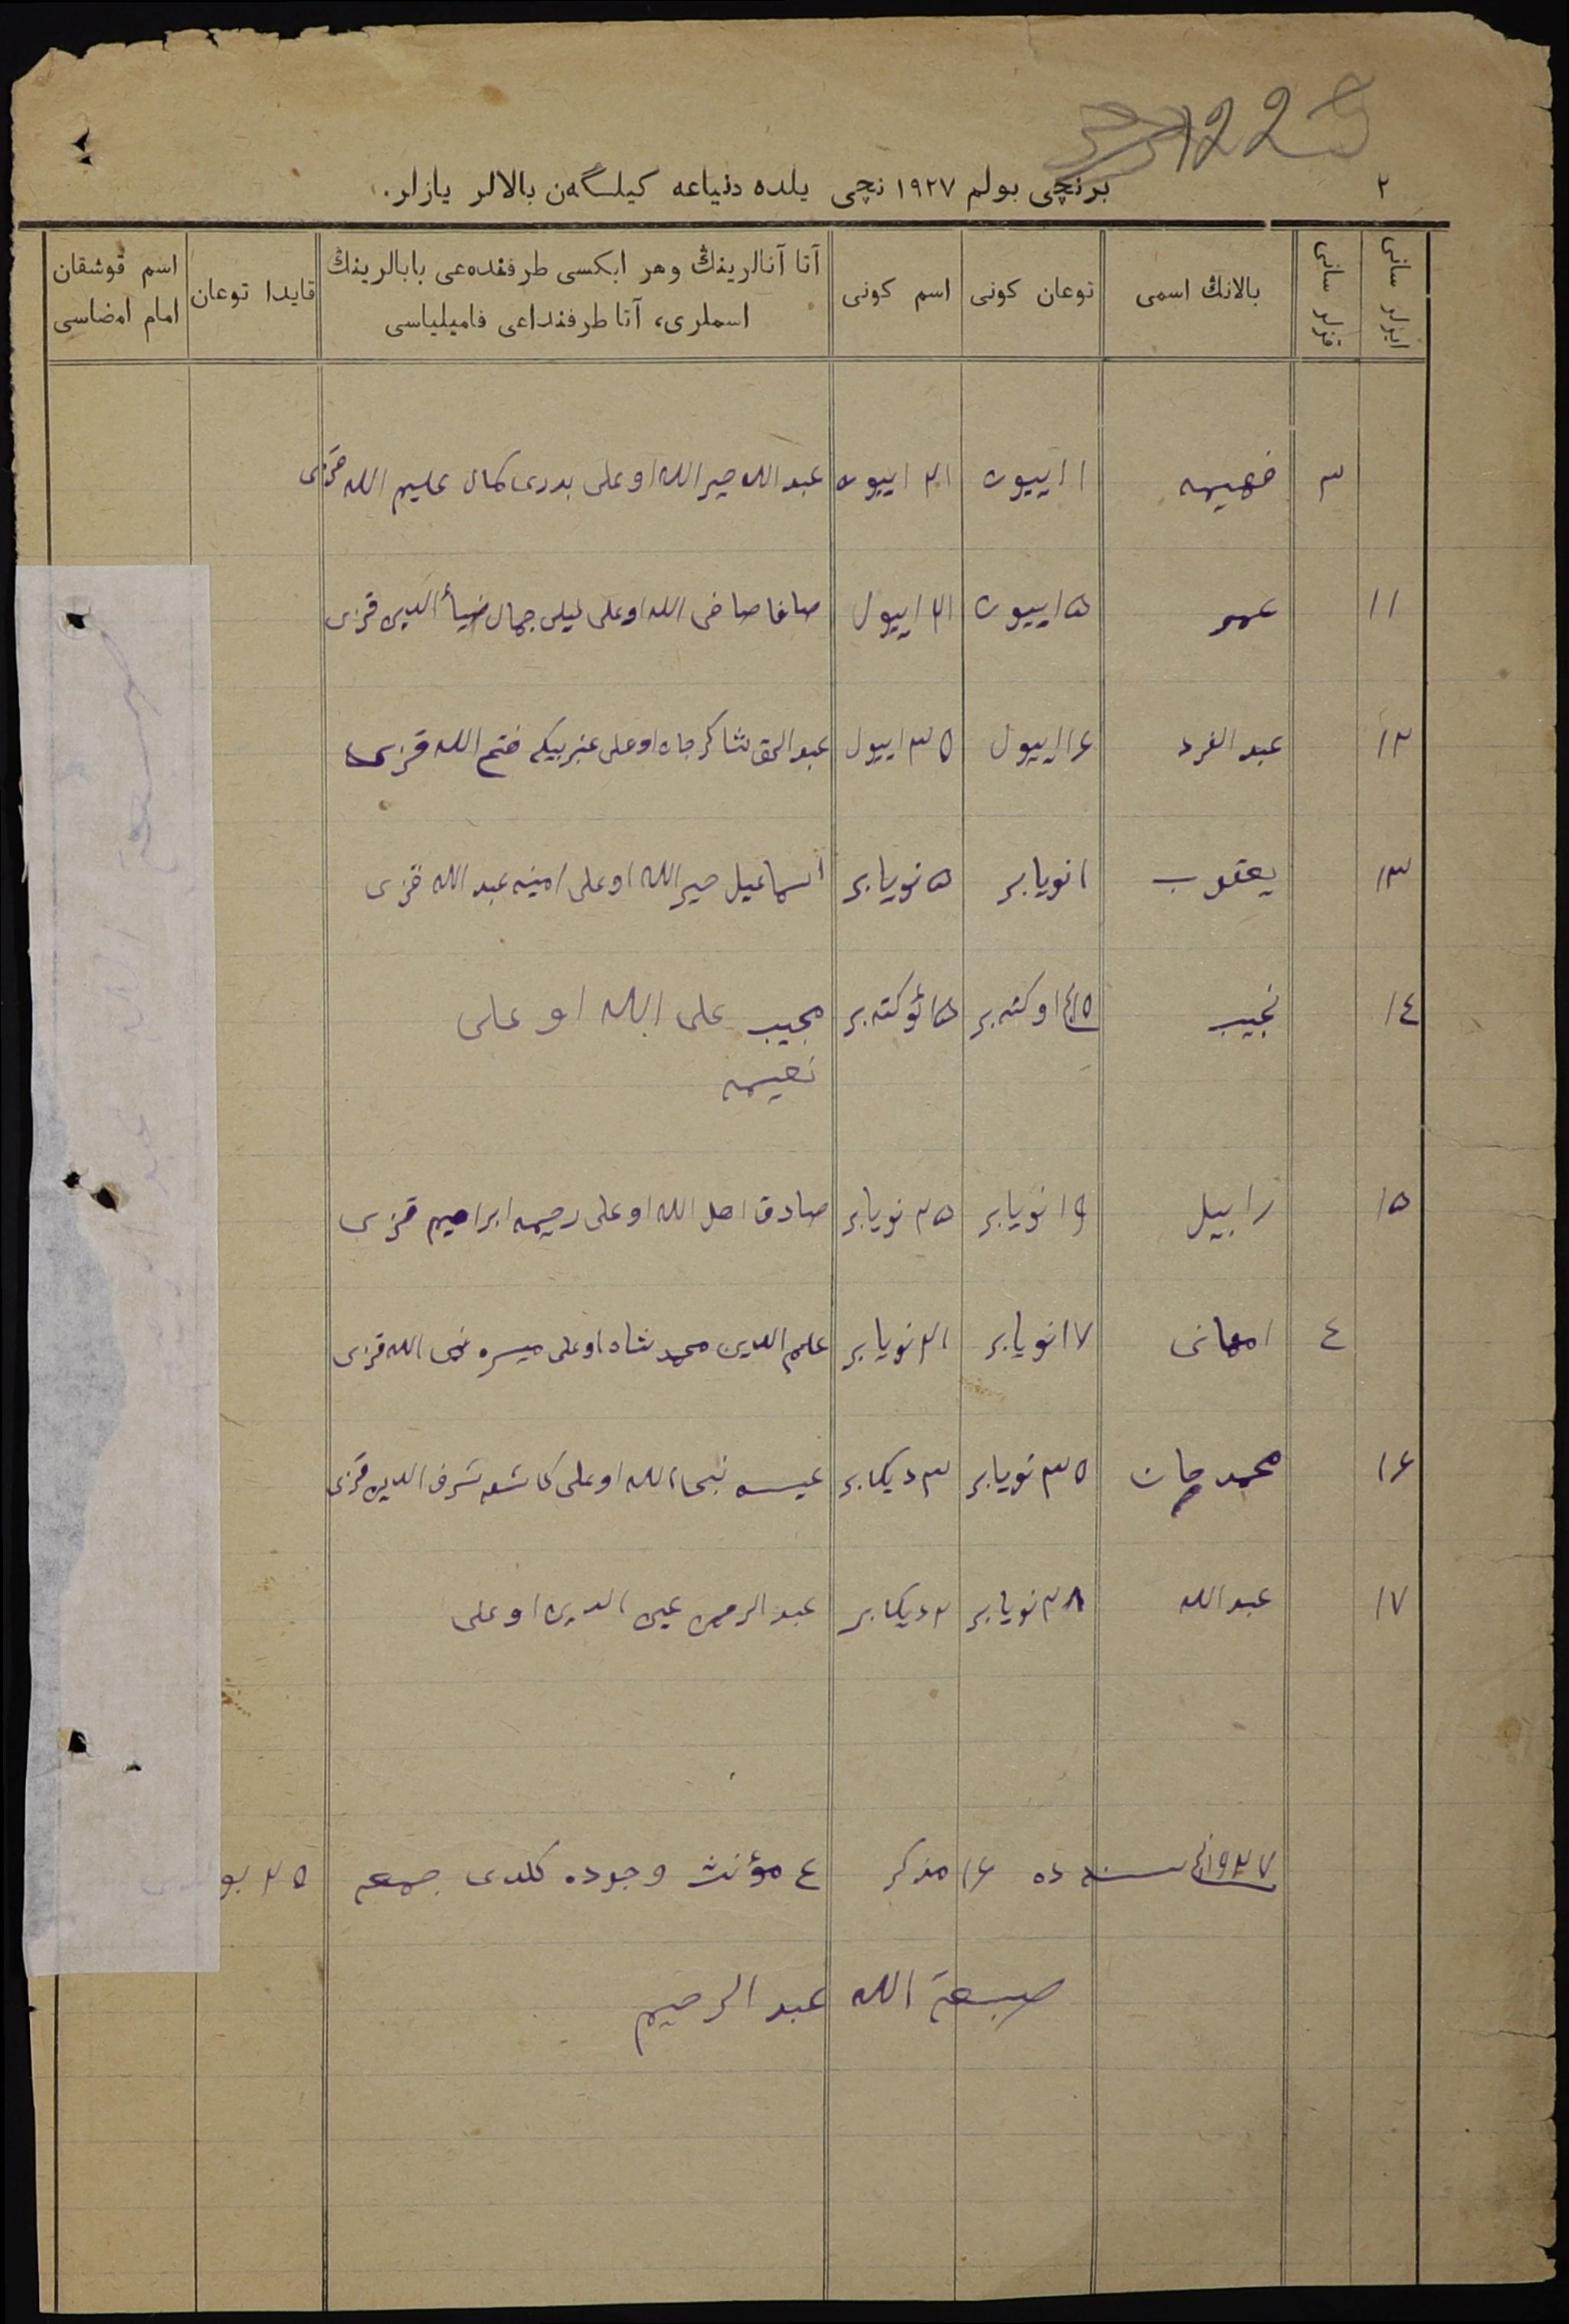 122
٢
برنچی بولم ١٩٢٧ نچی یلده دنیاعه کیلـگهن بالالر یازلر.
ایرلر سانی
قزلر سانی
بالانڭ اسمی
توعان کونی
اسم کونی
آتا آنالرینڭ وهر ایکسی طرفنده‌عی بابالرینڭ
اسملری، آتا طرفنداعی فامیلیاسی
قایدا توعان
اسم قوشقان
امام امضاسی
٣ فهیمه ١ اییون ٢١ اییون عبدالله خیرالله اوعلی بدرکمال علیم الله قزی
١١ عمر ١٥ اییون ٢١ اییول صافا صافی الله اوعلی لیلی جمال ضیأالدین قزی
١٢ عبد الفرد ١٦ اییول ٣٥ اییول عبدالحق شاکرجان اوعلی عنبربیکه فتح الله قزی
١٣ یعقوب ١ نویابر ٥ نویابر اسماعیل خیرالله اوعلی امینه عبدالله قزی
١٤ نجیب اوکتهبر ١٥ ئوکتهبر مجیب علی الله اوعلی
نعیمه
١٥ رابیل ١٩ نویابر ٢٥ نویابر صادق اهل الله اوعلی رحیمه ابراهیم قزی
٤ امهانی ١٧ نویابر ٢١ نویابر علم الدین محمدشاه اوعلی میسره الله قزی
١٦ محمدجان ٢٥ نویابر ٣ دیکابر عیسه الله اوعلی کاشفه شرف الدین قزی
١٧ عبدالله ٢٨ نویابر ٢ دیکابر عبدالرحمن عین الدین اوعلی
١٩٢٧ نچی سنه ده ١٦ مذکر ٤ مؤنث وجوده کلدی جمعه ٢٥
صبغة الله عبد الرحیم